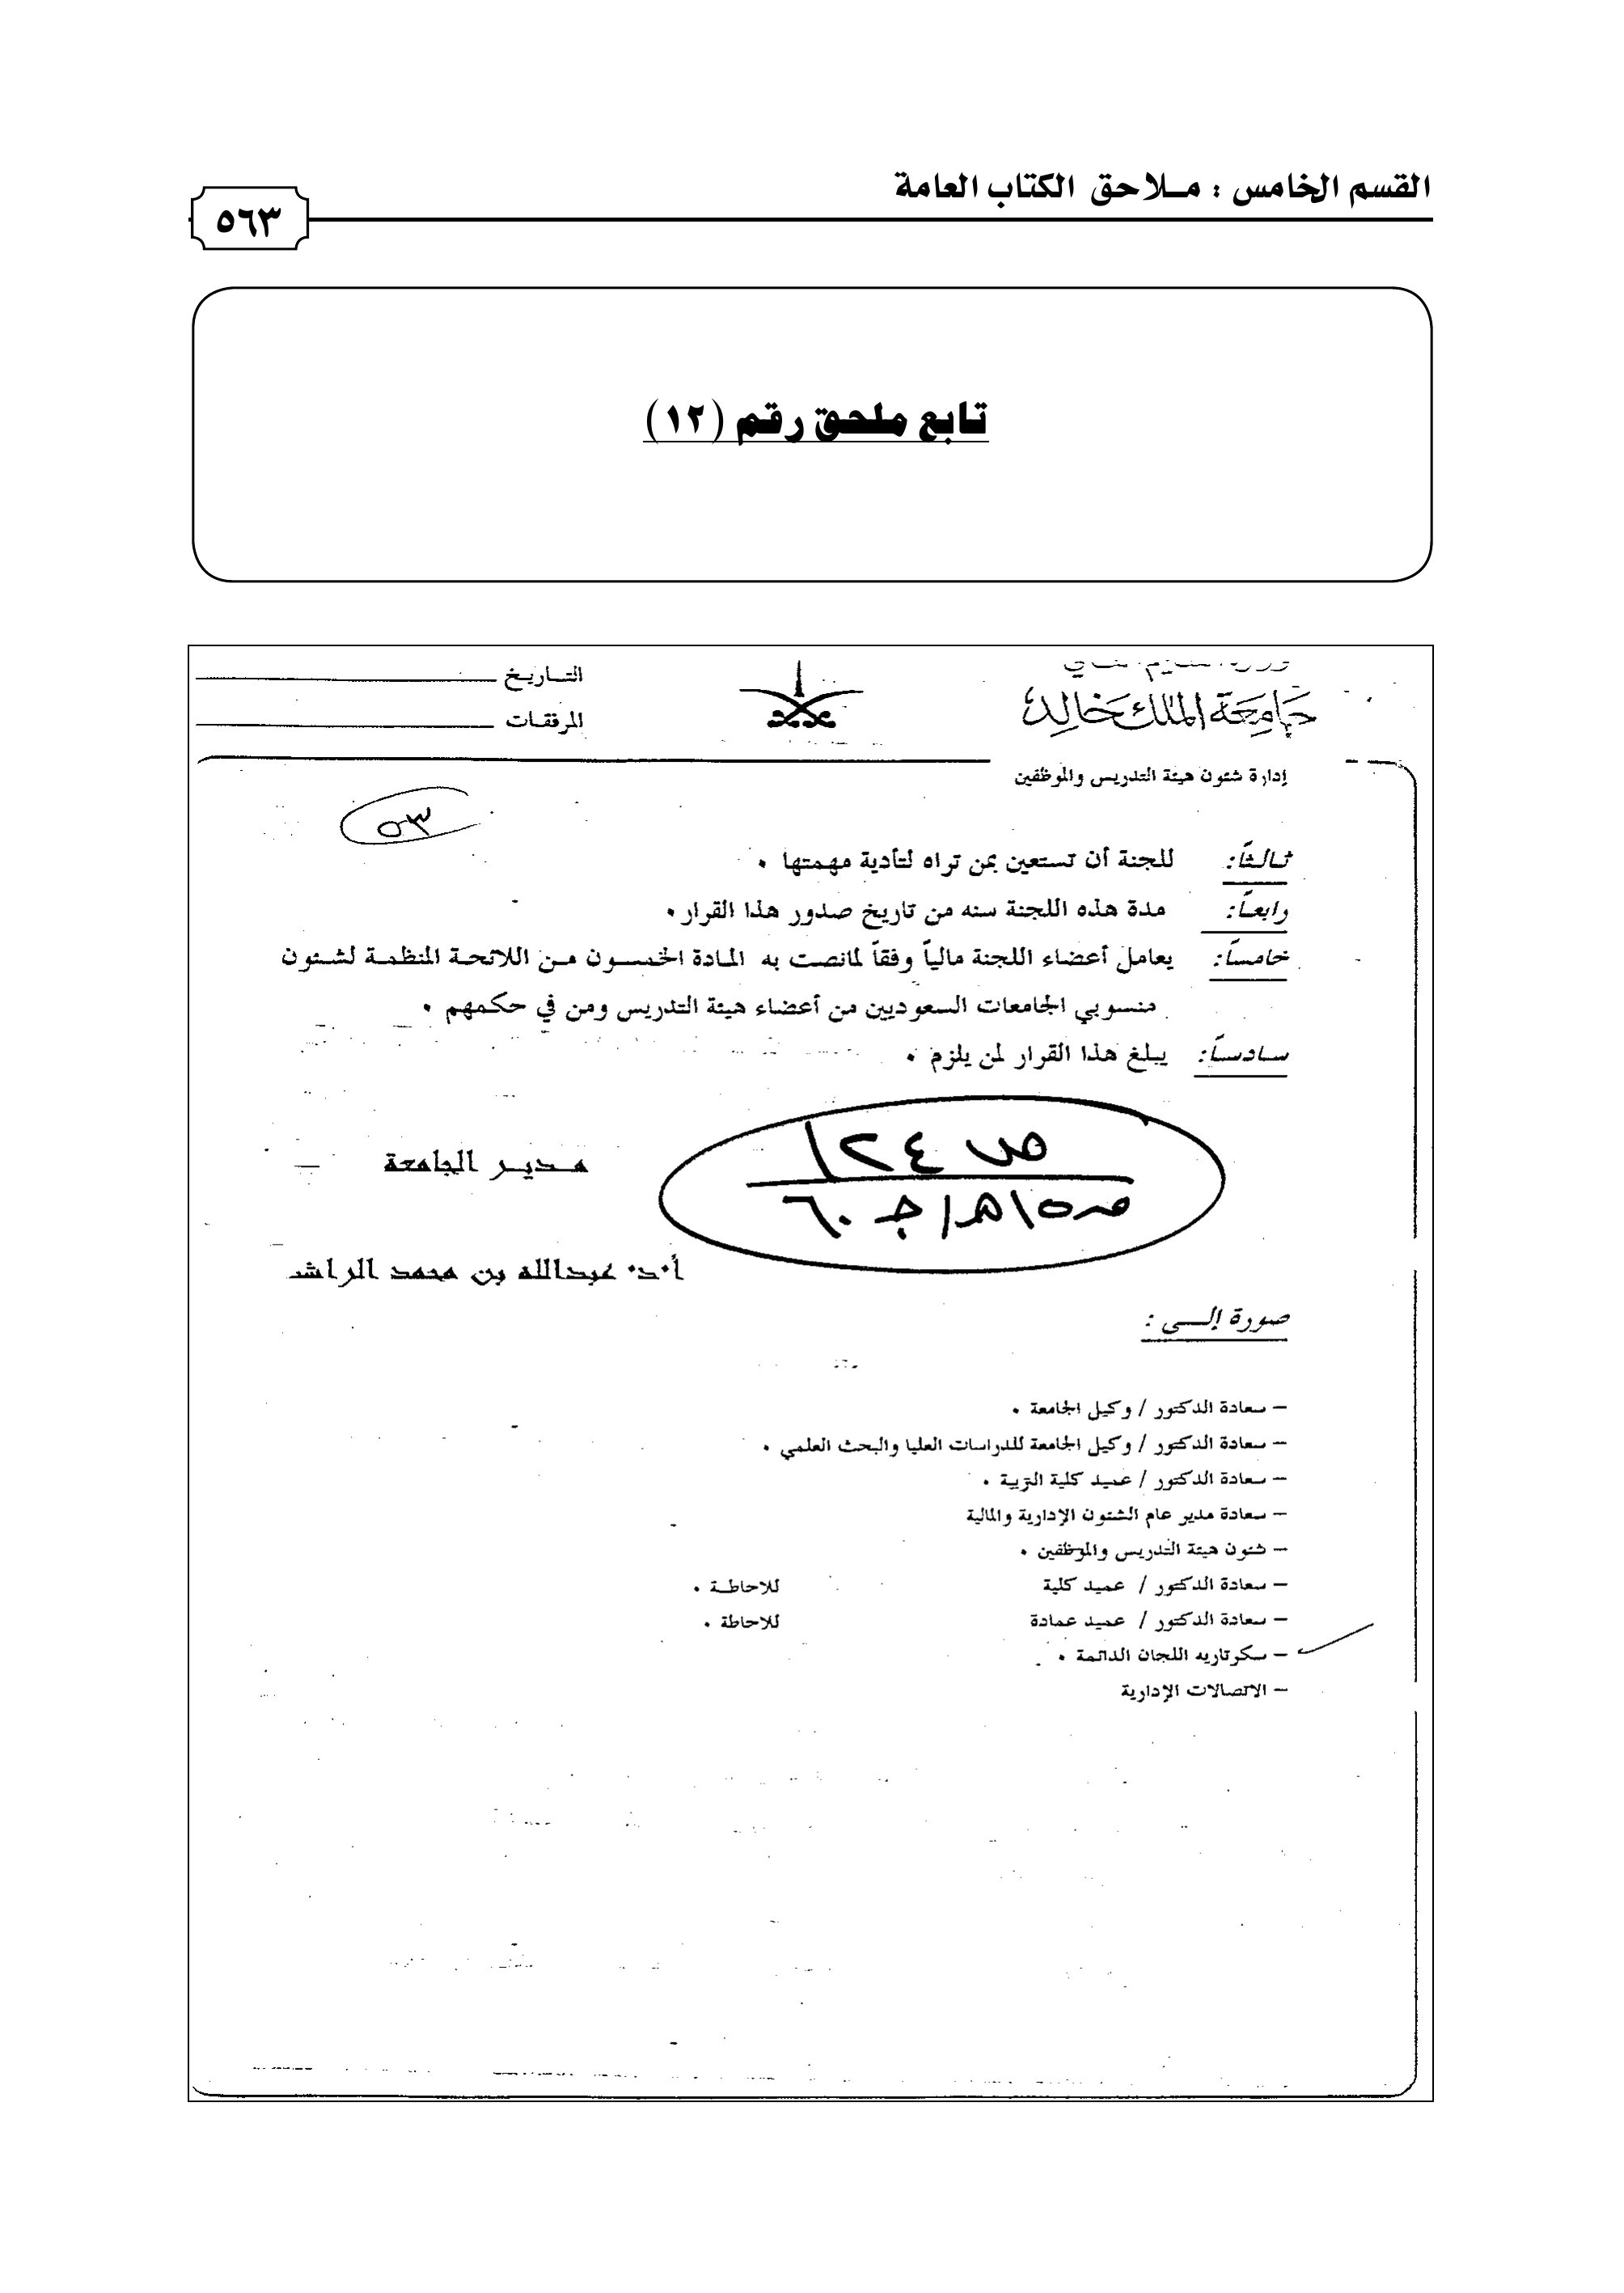 القسم الخامس : مـلاحق الكتاب العامة
٥٦٣
تابع ملحق رقم (١٢)
جامعة الملك خالد
التـاريـخ
المرفقـات
إدارة شئون هيئة التدريس والموظفين
٥٣
ثـالثـاً: للجنة أن تستعين بمن تراه لتأدية مهمتها .
رابعـاً: مدة هذه اللجنة سنه من تاريخ صدور هذا القرار.
خامسـاً: يعامل أعضاء اللجنة مالياً وفقاً لمانصت به المادة الخمسـون مـن اللائحـة المنظمـة لشـئون
منسوبي الجامعات السعوديين من أعضاء هيئة التدريس ومن في حكمهم .
سـادسـاً: يبلغ هذا القرار لمن يلزم .
ص ١٢٤
مديـر الجامعة
أ.د. عبدالله بن محمد الراشد
صورة إلـى :
– سعادة الدكتور / وكيل الجامعة .
– سعادة الدكتور / وكيل الجامعة للدراسات العليا والبحث العلمي .
– سعادة الدكتور / عميد كلية التربية .
– سعادة مدير عام الشئون الإدارية والمالية
– شئون هيئة التدريس والموظفين .
– سعادة الدكتور / عميد كلية للاحاطـة .
– سعادة الدكتور / عميد عمادة للاحاطة .
– سكرتاريه اللجان الدائمة .
– الاتصالات الإدارية